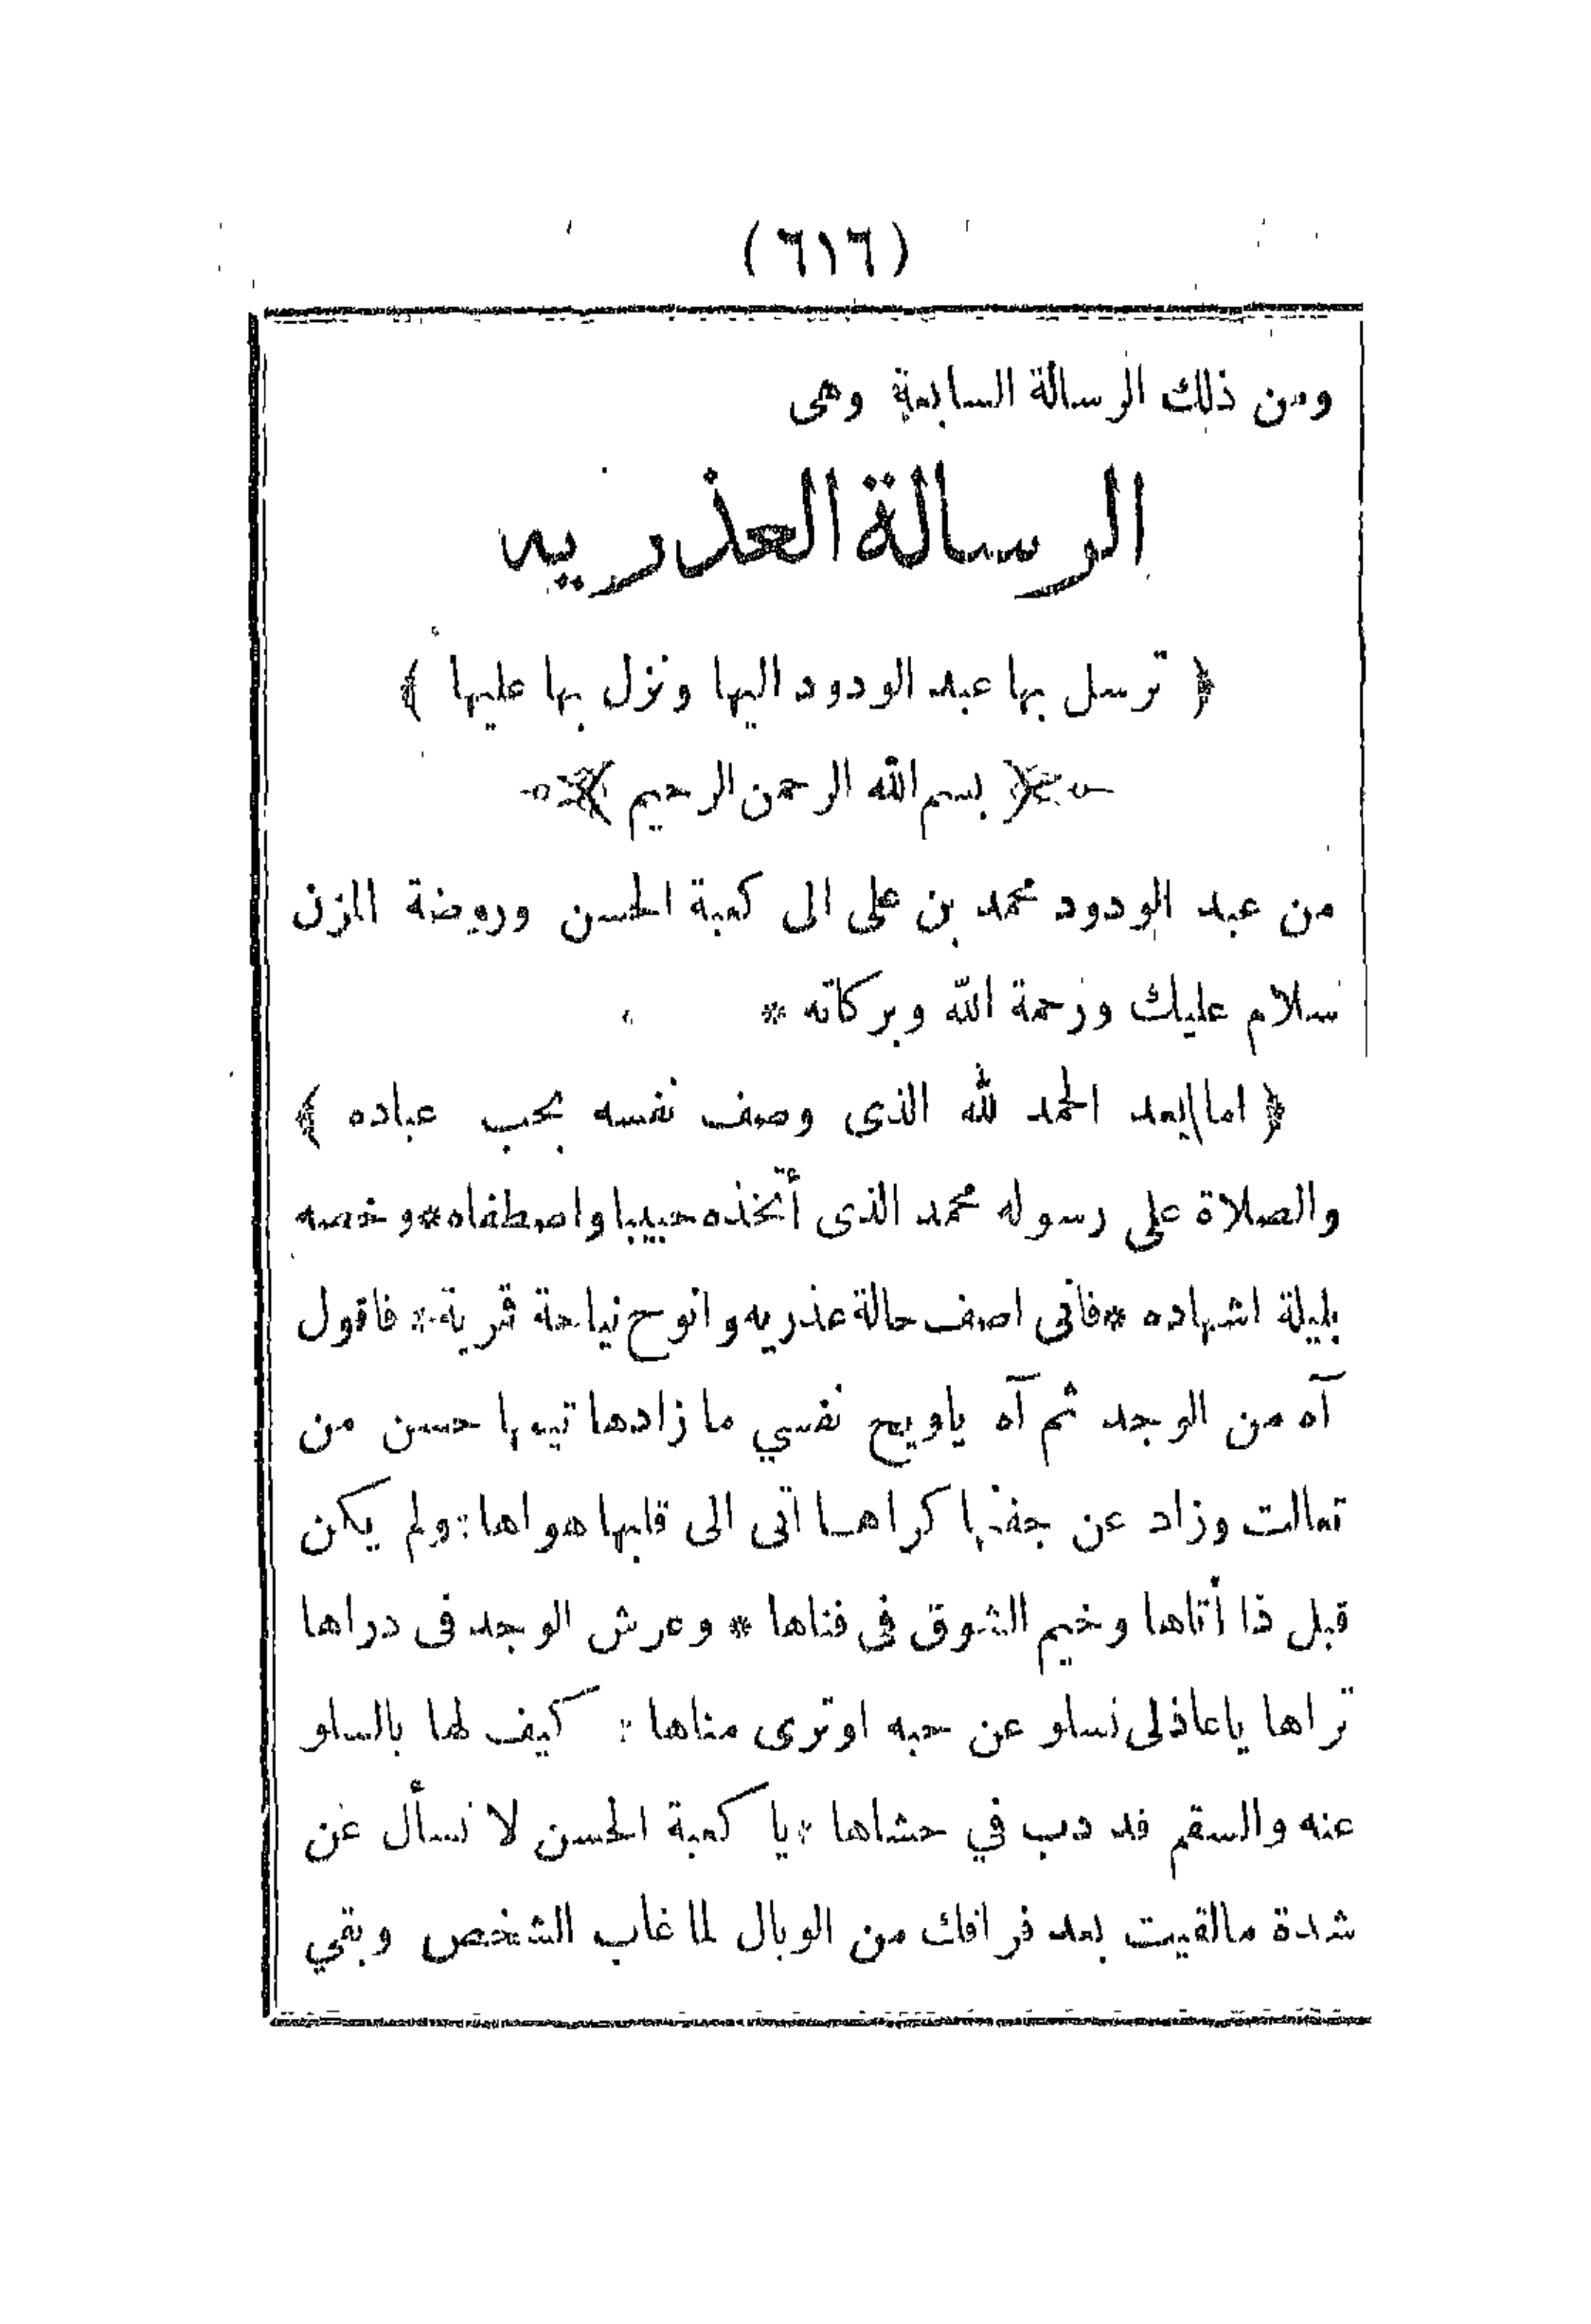 (٦١٦)
ومن ذلك الرسالة السابعة وهى
الرسالة العذريه
﴿ ترسل بها عبد الودود اليها ونزل بها عليها ﴾
﴿ بسم الله الرحمن الرحيم ﴾
من عبد الودود محمد بن على الى كعبة الحسن وروضة المزن
سلام عليك ورحمة الله وبركاته *
﴿ اما بعد الحمد لله الذى وصف نفسه بحب عباده ﴾
والصلاة على رسوله محمد الذى أتخذه حبيبا واصطفاه * وخصه
بليلة اشهاده * فانى اصف حالة عذريه وانوح نياحة قرية * فاقول
آه من الوجد ثم آه ياويح نفسي ما زادها تيها حسن من
تعالت وزاد عن جفنها كراها اتى الى قلبها هواها * ولم يكن
قبل ذا أتاها وخيم الشوق فى فناها * وعرش الوجد فى دراها
تراها ياعاذلى نسلو عن حبه اوترى مناها * كيف لها بالسلو
عنه والسقم قد دب في حشاها * يا كعبة الحسن لا نسأل عن
شدة مالقيت بعد فراقك من الوبال لما غاب الشخص وبقي